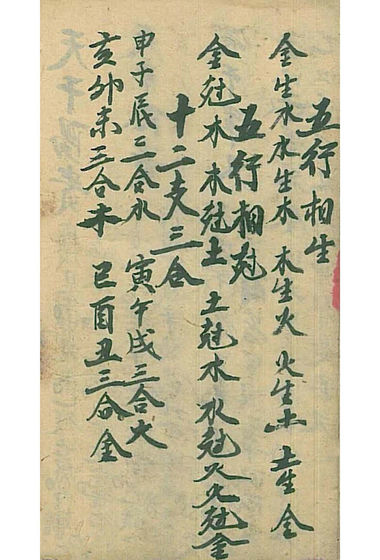 五行相生
金生水水生木 木生火 火生土 土生金
五行相尅
金尅木 木尅土 土尅水 水尅火火尅金
十二支三合
申子辰三合水 寅午戌三合火
亥卯未三合木 巳酉丑三合金